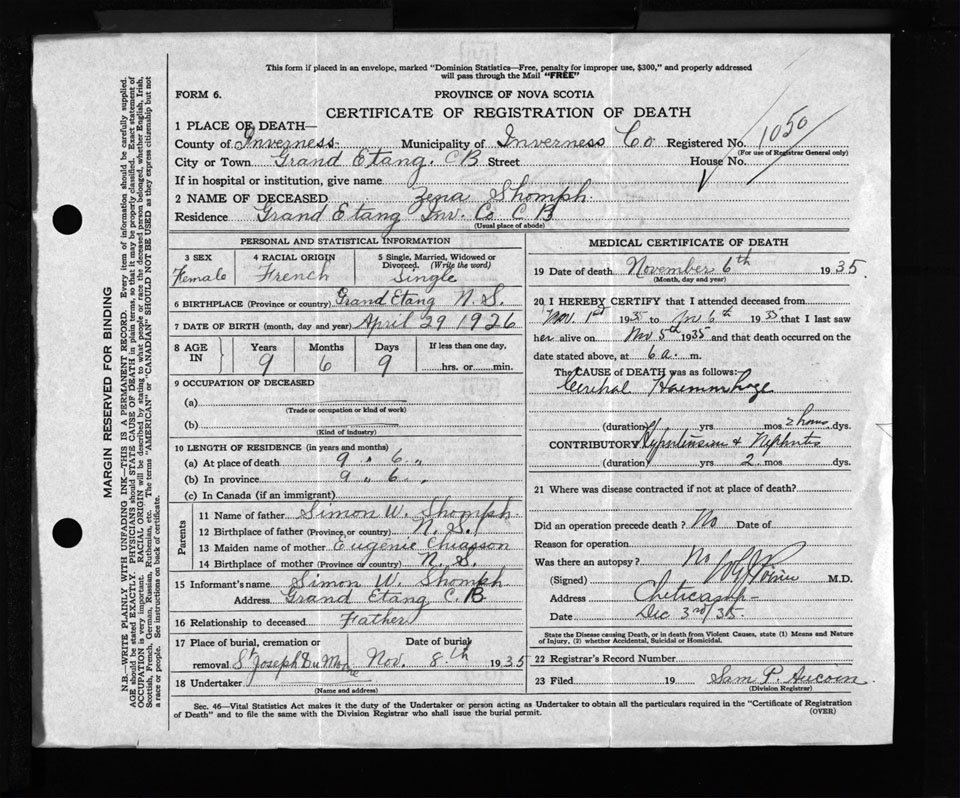 This form if placed in an envelope, marked "Dominion Statistics—Free, penalty for improper use, $300," and properly addressed
will pass through the Mail "FREE"
FORM 6.
PROVINCE OF NOVA SCOTIA
CERTIFICATE OF REGISTRATION OF DEATH
1 PLACE OF DEATH—
County of Inverness. Municipality of Inverness Co Registered No. 1050
(For use of Registrar General only)
City or Town Grand Etang. CB Street House No.
If in hospital or institution, give name
2 NAME OF DECEASED Zena Shomph.
Residence Grand Etang Inv. Co C B
(Usual place of abode)
PERSONAL AND STATISTICAL INFORMATION
3 SEX 4 RACIAL ORIGIN 5 Single, Married, Widowed or
Divorced. (Write the word)
Female French Single
6 BIRTHPLACE (Province or country) Grand Etang N. S.
7 DATE OF BIRTH (month, day and year) April 29 1926
8 AGE IN Years Months Days If less than one day,
9 6 9 hrs. or min.
9 OCCUPATION OF DECEASED
(a)
(Trade or occupation or kind of work)
(b)
(Kind of industry)
10 LENGTH OF RESIDENCE (in years and months)
(a) At place of death 9 " 6 "
(b) In province 9 " 6 "
(c) In Canada (if an immigrant)
Parents
11 Name of father Simon W. Shomph.
12 Birthplace of father (Province or country) N. S.
13 Maiden name of mother Eugénie Chiasson
14 Birthplace of mother (Province or country) N. S.
15 Informant's name Simon W. Shomph
Address Grand Etang C. B.
16 Relationship to deceased Father
17 Place of burial, cremation or Date of burial
removal St Joseph Du Moine Nov. 8th 1935
18 Undertaker
(Name and address)
MEDICAL CERTIFICATE OF DEATH
19 Date of death November 6th 1935.
(Month, day and year)
20 I HEREBY CERTIFY that I attended deceased from
Nov 1st 1935 to Nov 6th 1935 that I last saw
her alive on Nov 5th 1935 and that death occurred on the
date stated above, at 6 a. m.
The CAUSE OF DEATH was as follows:
Cerebral Haemorrhage
(duration) yrs mos. 2 hours dys.
CONTRIBUTORY Hypertension & Nephritis
(duration) yrs 2 mos. dys.
21 Where was disease contracted if not at place of death?
Did an operation precede death? No Date of
Reason for operation
Was there an autopsy? No
(Signed) Poirier M.D.
Address Cheticamp
Date Dec 3rd/35
State the Disease causing Death, or in death from Violent Causes, state (1) Means and Nature
of Injury, (2) whether Accidental, Suicidal or Homicidal.
22 Registrar's Record Number
23 Filed 19 Sam P. Aucoin
(Division Registrar)
Sec. 46—Vital Statistics Act makes it the duty of the Undertaker or person acting as Undertaker to obtain all the particulars required in the "Certificate of Registration
of Death" and to file the same with the Division Registrar who shall issue the burial permit.
(OVER)
MARGIN RESERVED FOR BINDING
N.B.—WRITE PLAINLY WITH UNFADING INK—THIS IS A PERMANENT RECORD. Every item of information should be carefully supplied.
AGE should be stated EXACTLY. PHYSICIANS should STATE CAUSE OF DEATH in plain terms, so that it may be properly classified. Exact statement of
OCCUPATION is very important. RACIAL ORIGIN will be described by stating to what people or race the deceased person belonged, whether English, Irish,
Scottish, French, German, Russian, Ruthenian, etc. The terms "AMERICAN" or "CANADIAN" SHOULD NOT BE USED as they express citizenship but not
a race or people. See instructions on back of certificate.